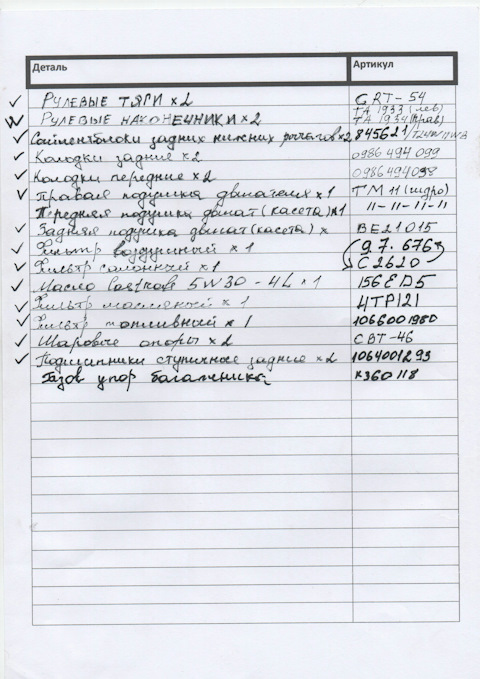 Деталь Артикул
Рулевые тяги x2 CRT-54
Рулевые наконечники x2 TA 1933 (лев) TA 1934 (прав)
Сайлентблоки задних нижних рычагов x2 845621/
Колодки задние x2 0986494099
Колодки передние x2 0986494098
Правая подушка двигателя x1 TM 11 (гидро)
Передняя подушка двигат (касета) x1 11-11-11-11
Задняя подушка двигат (касета) x BE21015
Фильтр воздушный x1 97.676
Фильтр салонный x1 C2620
Масло Castrol 5W30-4L x1 156ED5
Фильтр масляный x1 4TP121
Фильтр топливный x1 1066001980
Шаровые опоры x2 CBT-46
Подшипники ступичные задние x2 1064001293
Газов упор багажника x360118